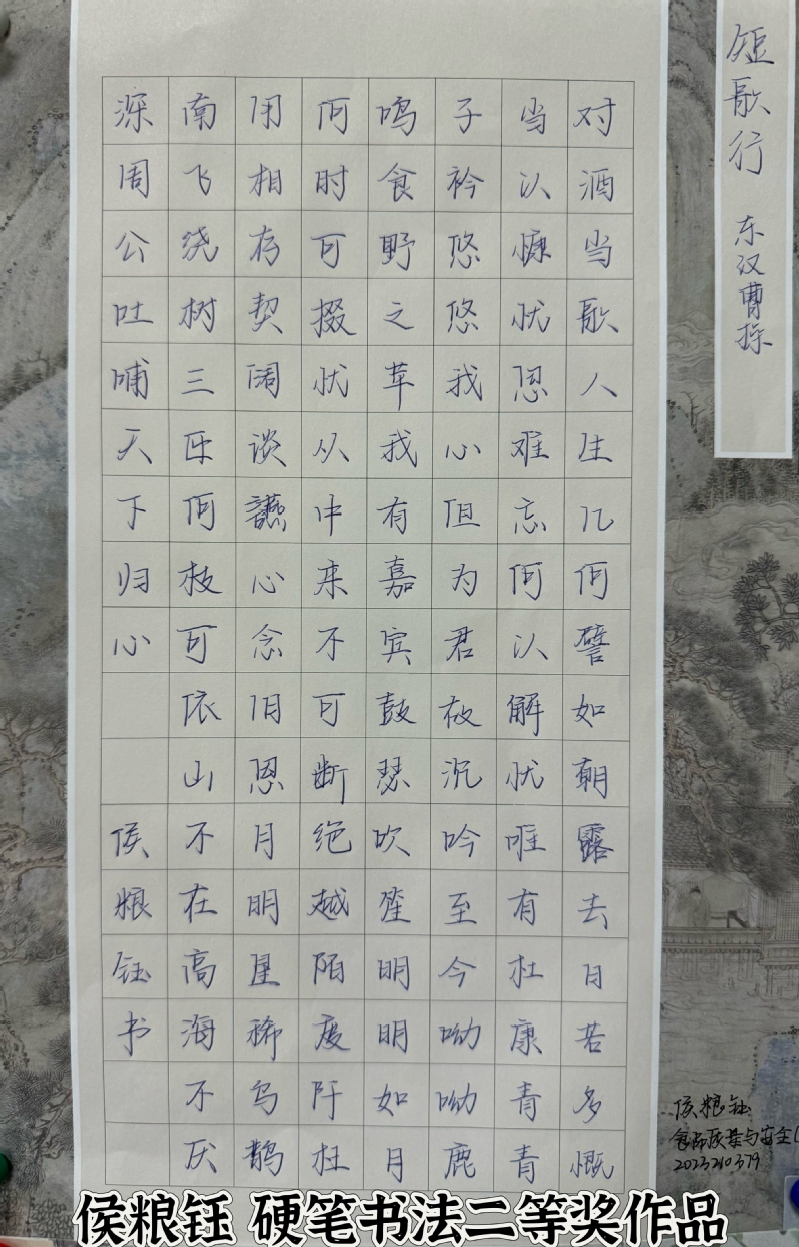 短歌行 东汉曹操
对酒当歌人生几何譬如朝露去日苦多慨
当以慷忧思难忘何以解忧唯有杜康青青
子衿悠悠我心但为君故沉吟至今呦呦鹿
鸣食野之草我有嘉宾鼓瑟吹笙明明如月
何时可掇忧从中来不可断绝越陌度阡枉
用相存契阔谈讌心念旧恩月明星稀乌鹊
南飞绕树三匝何枝可依山不在高海不厌
深周公吐哺天下归心 侯粮钰书
侯粮钰
食品质量与安全(
2023210379
侯粮钰 硬笔书法二等奖作品